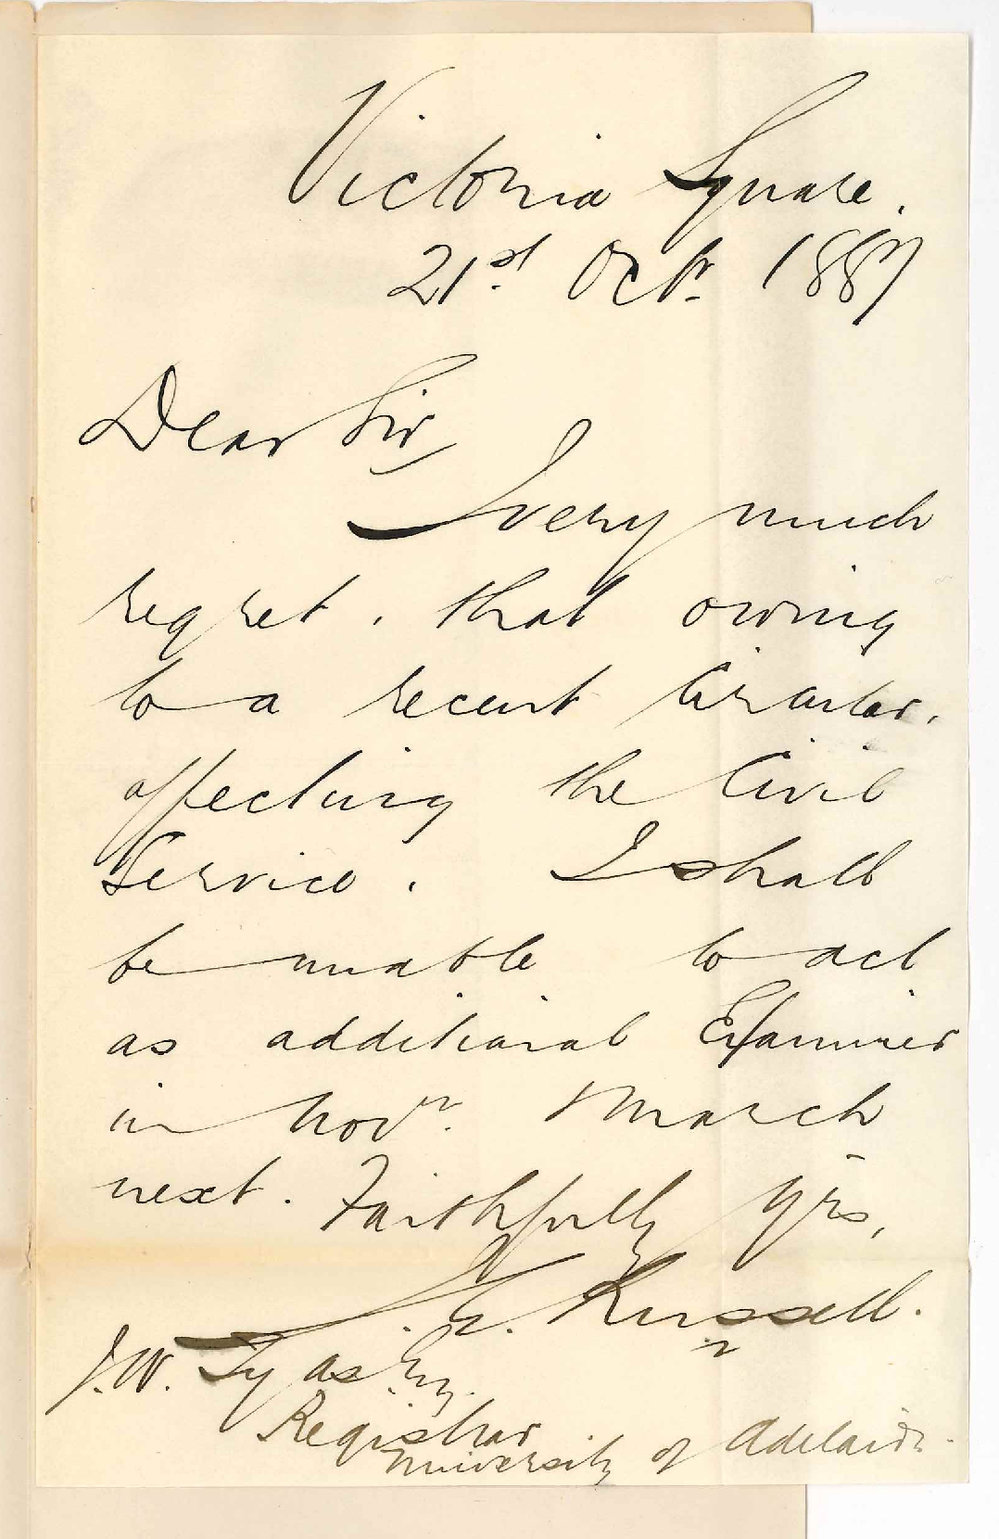 Victoria Square.
21st. Octr. 1887
Dear Sir,
I very much
regret. that owing
to a recent Circular,
affecting the Civil
Service. I shall
be unable to act
as additional Examiner
in Novr. March
next. Faithfully yrs,
Russell.
J.W. Tyas Esq.
Registrar
University of Adelaide.